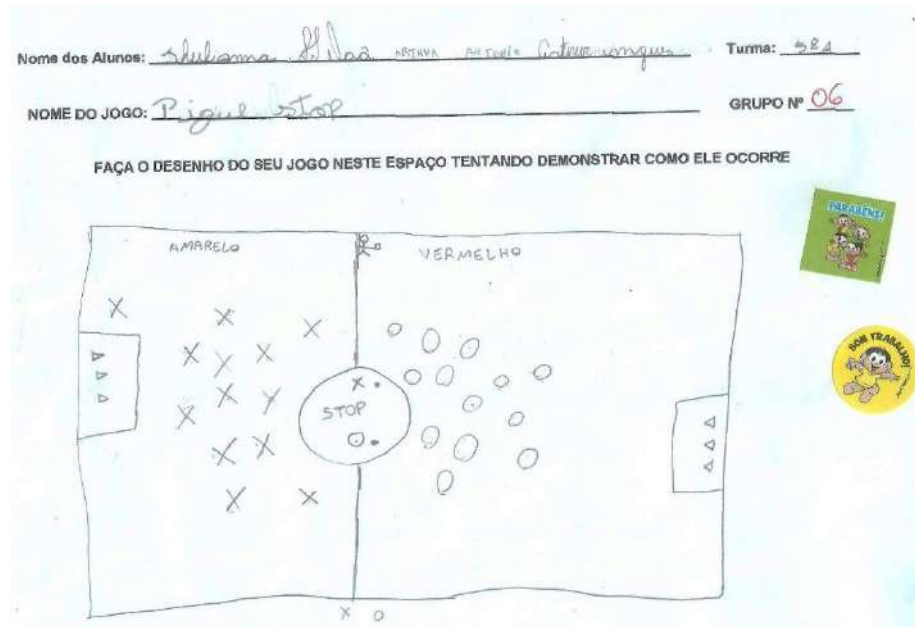 Nome dos Alunos: ARTHUR ANTONIO Turma:
NOME DO JOGO: Pique stop GRUPO Nº 06
FAÇA O DESENHO DO SEU JOGO NESTE ESPAÇO TENTANDO DEMONSTRAR COMO ELE OCORRE
PARABÉNS!
AMARELO VERMELHO
BOM TRABALHO!
STOP